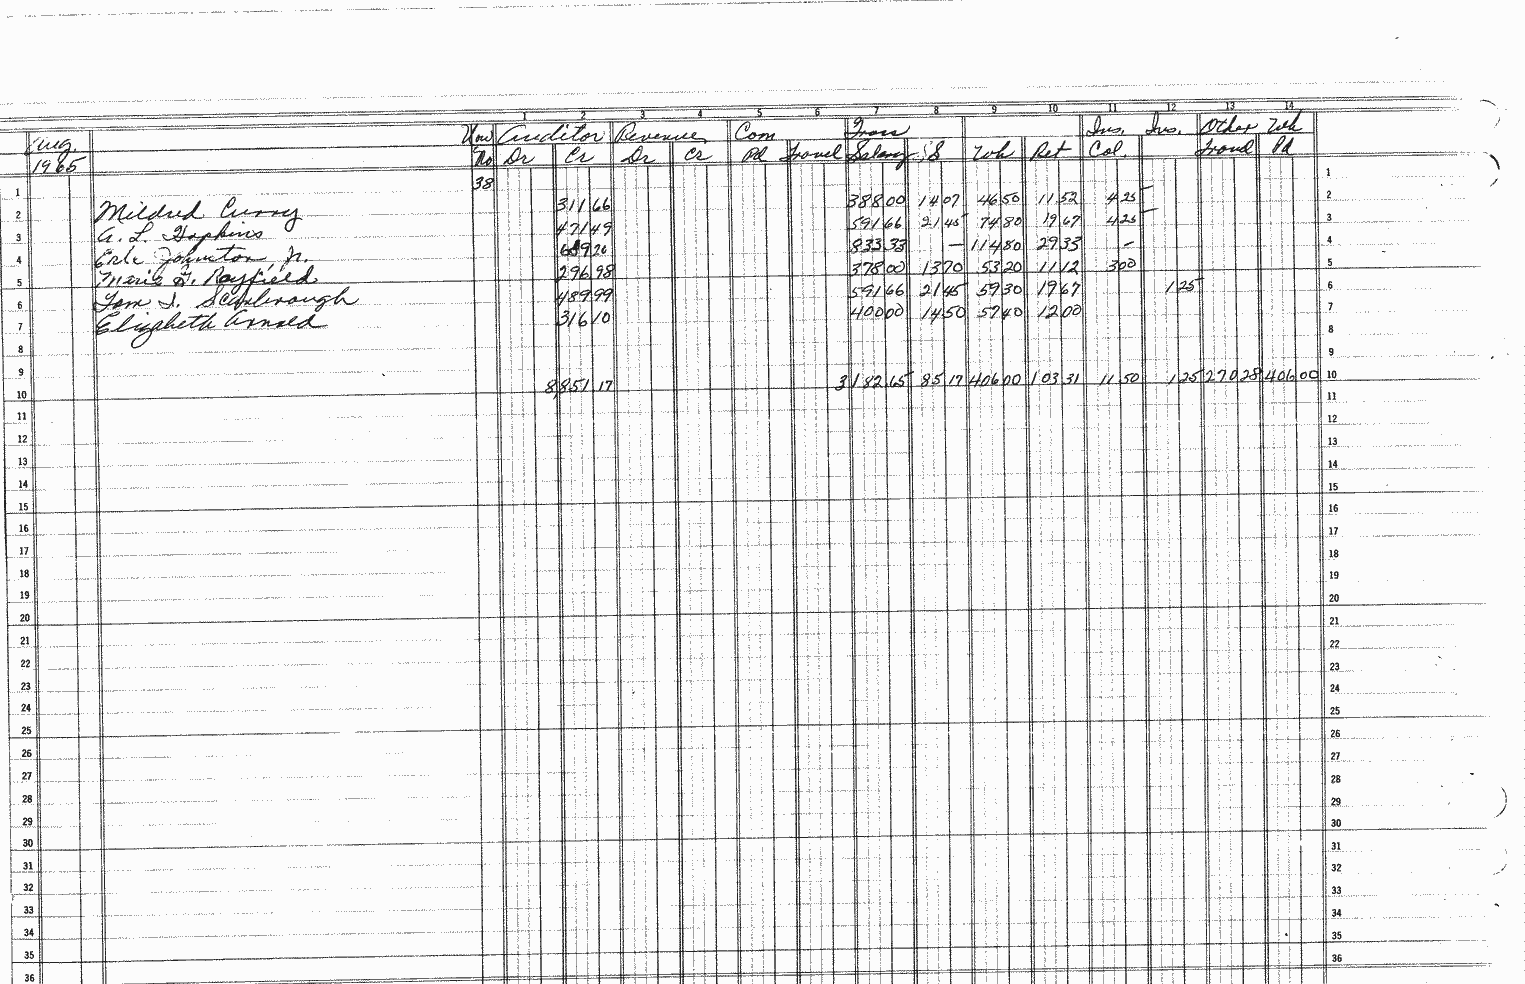 1 2 3 4 5 6 7 8 9 10 11 12 13 14
Aug. Vou Auditor Revenue Com Gross Ins. Ins. Other Wh
1965 No Dr Cr Dr Cr Pd Travel Salary SS Wh Ret Col. Travel Pd
1 38 1
2 Mildred Curry 311 66 388 00 14 07 46 50 11 52 4 25 2
3 A. L. Hopkins 471 49 591 66 21 45 74 80 19 67 4 25 3
4 Erle Johnston, Jr. 689 20 833 33 — 114 80 29 33 — 4
5 Marie G. Rayfield 296 98 378 00 13 70 53 20 11 12 3 00 5
6 Tom J. Scarbrough 489 99 591 66 21 45 59 30 19 67 1 25 6
7 Elizabeth Arnold 316 10 400 00 14 50 57 40 12 00 7
8 8
9 9
10 8,851 17 3 182 65 85 17 406 00 103 31 11 50 1 25 270 28 406 00 10
11 11
12 12
13 13
14 14
15 15
16 16
17 17
18 18
19 19
20 20
21 21
22 22
23 23
24 24
25 25
26 26
27 27
28 28
29 29
30 30
31 31
32 32
33 33
34 34
35 35
36 36